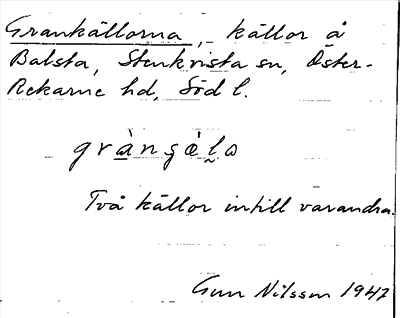 Grankällorna, källor å
Balsta, Stenkvista sn, Öster-
Rekarne hd, Söd l.
gràngæ̀lɷ
Två källor intill varandra.
Gun Nilsson 1947